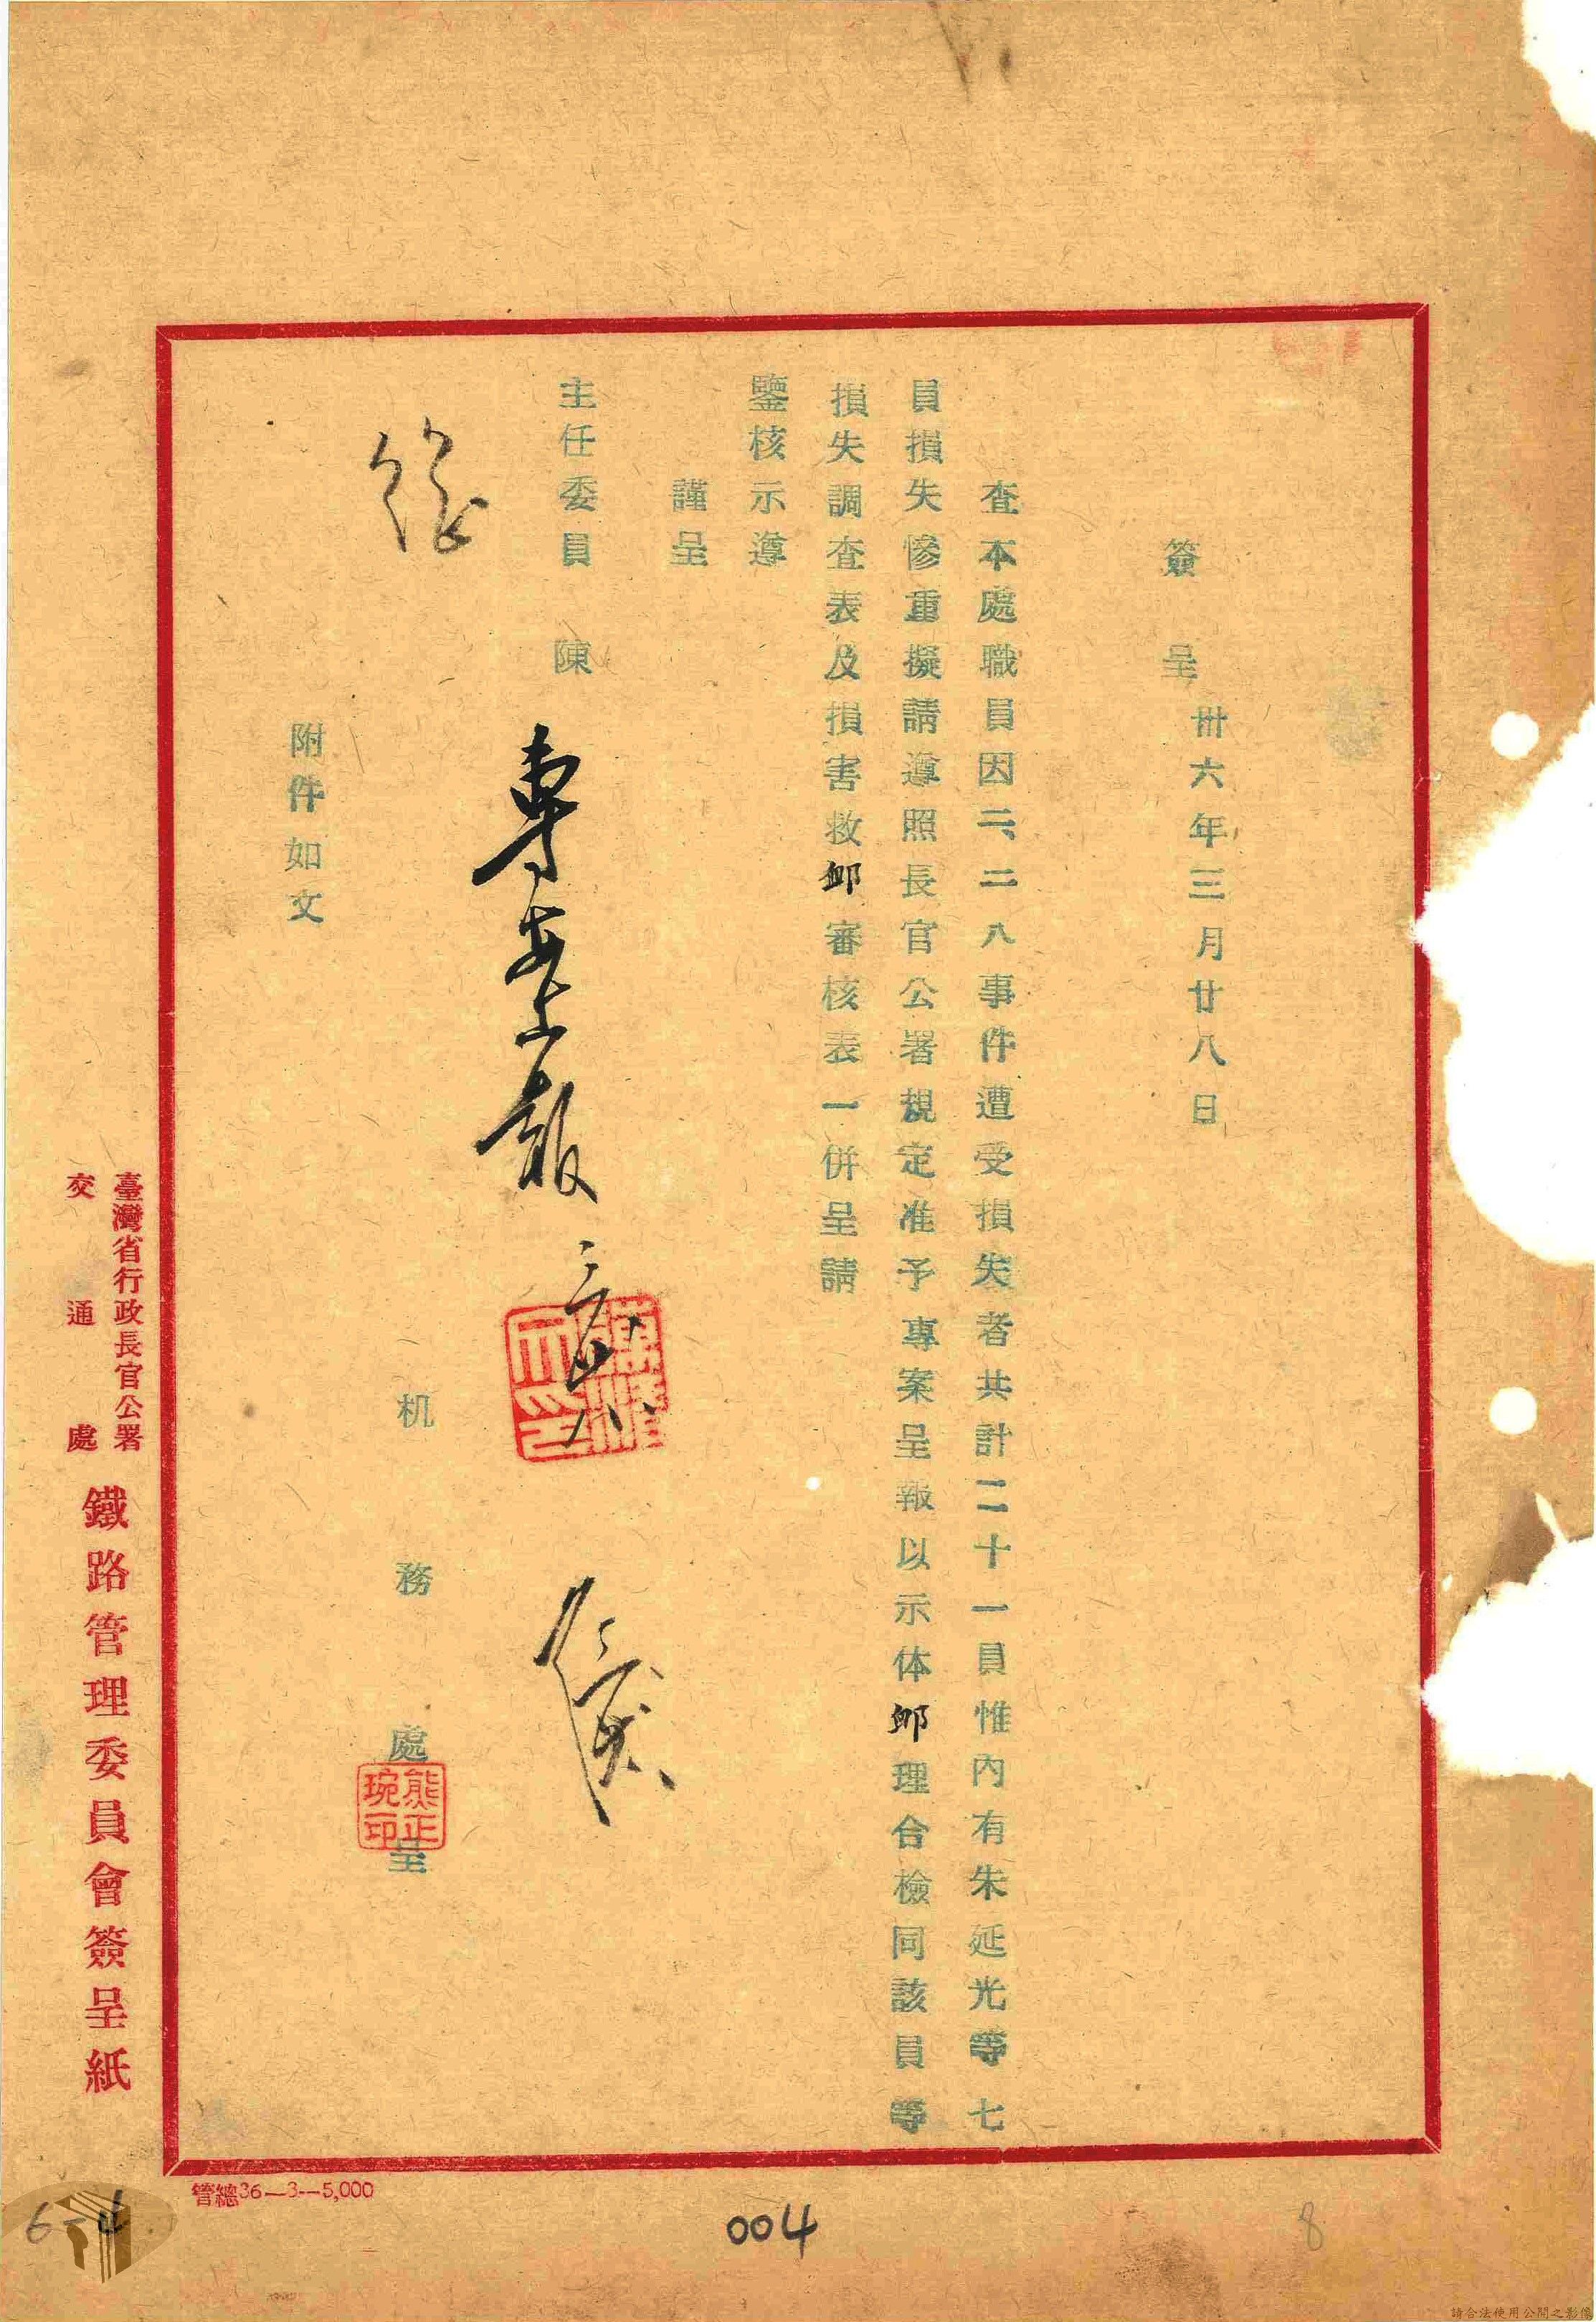 簽呈 卅六年三月廿八日
查本處職員因二、二八事件遭受損失者共計二十一員惟內有朱延光等七
員損失慘重擬請遵照長官公署規定准予專案呈報以示体卹理合檢同該員等
損失調查表及損害救卹審核表一併呈請
鑒核示遵
謹呈
主任委員 陳
專案上報
机務處呈
熊正琬印
附件如文
臺灣省行政長官公署
交通處
鐵路管理委員會簽呈紙
管總36—3—5,000
6-4
004
8
請合法使用公開之影像